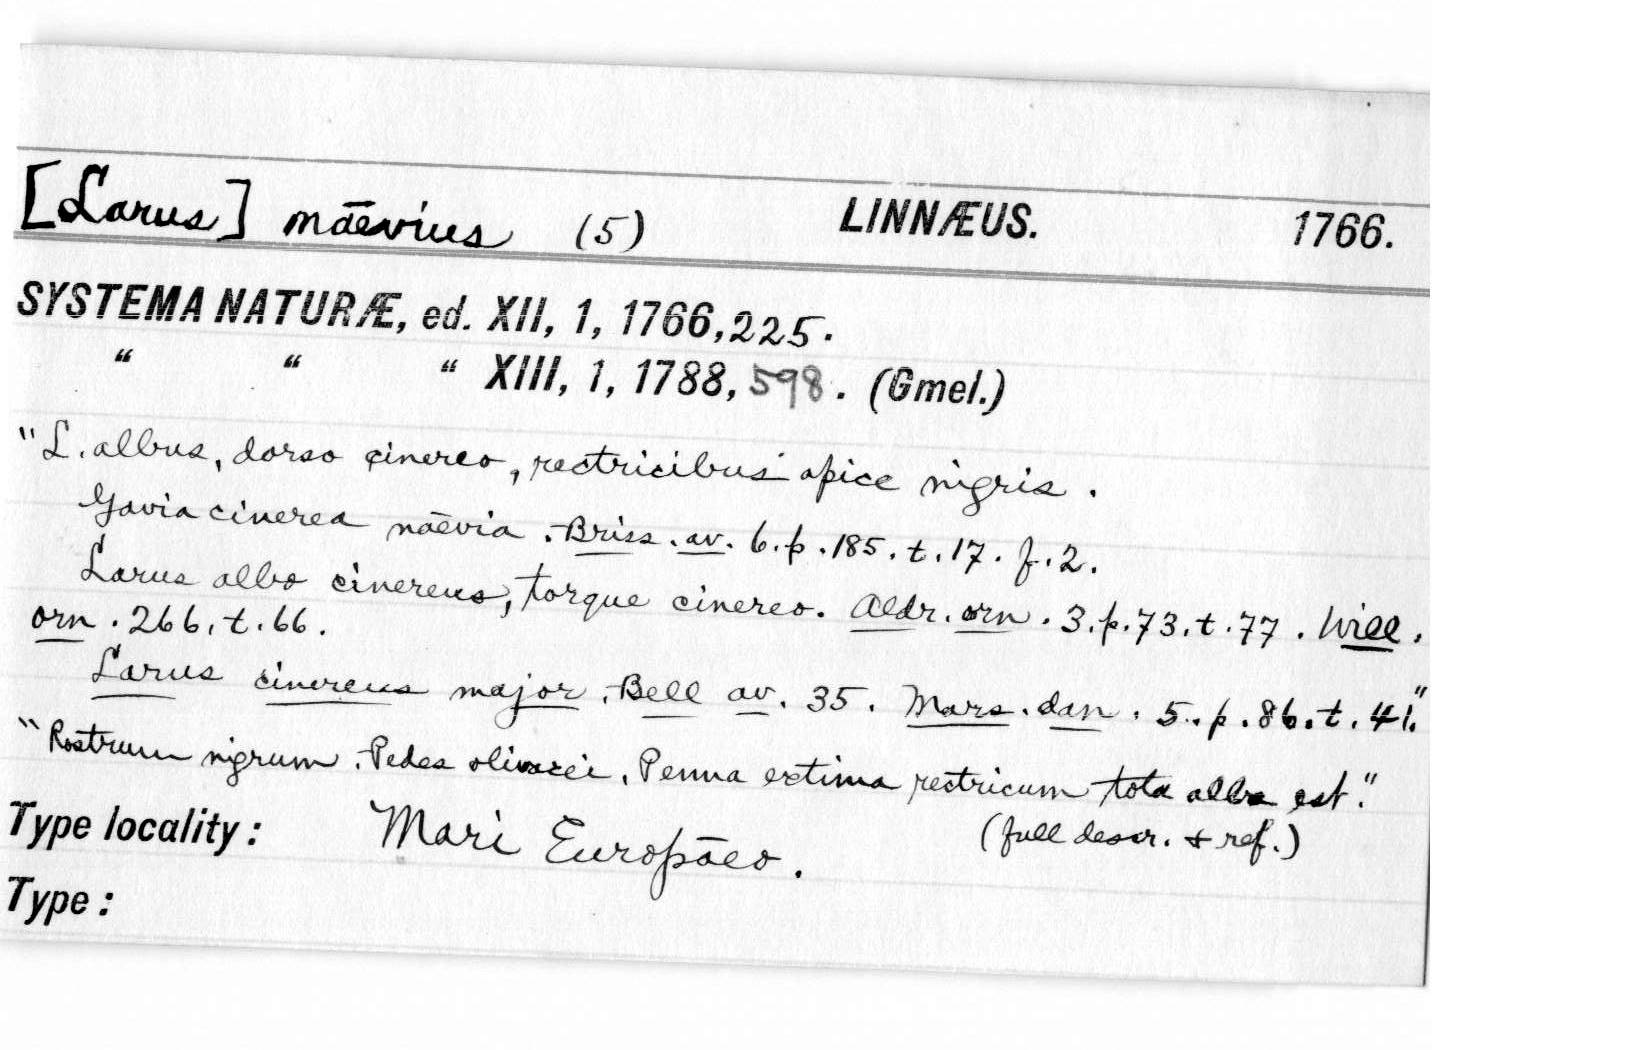 [Larus] nāevius (5) LINNÆUS. 1766.
SYSTEMA NATURÆ, ed. XII, 1, 1766, 225.
“ “ “ XIII, 1, 1788, 598. (Gmel.)
"L. albus, dorso cinereo, rectricibus apice nigris.
Gavia cinerea nāevia. Briss. av. 6. p. 185. t. 17. f. 2.
Larus albo cinereus, torque cinereo. Aldr. orn. 3. p. 73. t. 77. Will.
orn. 266. t. 66.
Larus cinereus major. Bell av. 35. Mars. dan. 5. p. 86. t. 41."
"Rostrum nigrum. Pedes olivacei. Penna extima rectricum tota alba est."
Type locality: Mari Europāeo. (full descr. & ref.)
Type: